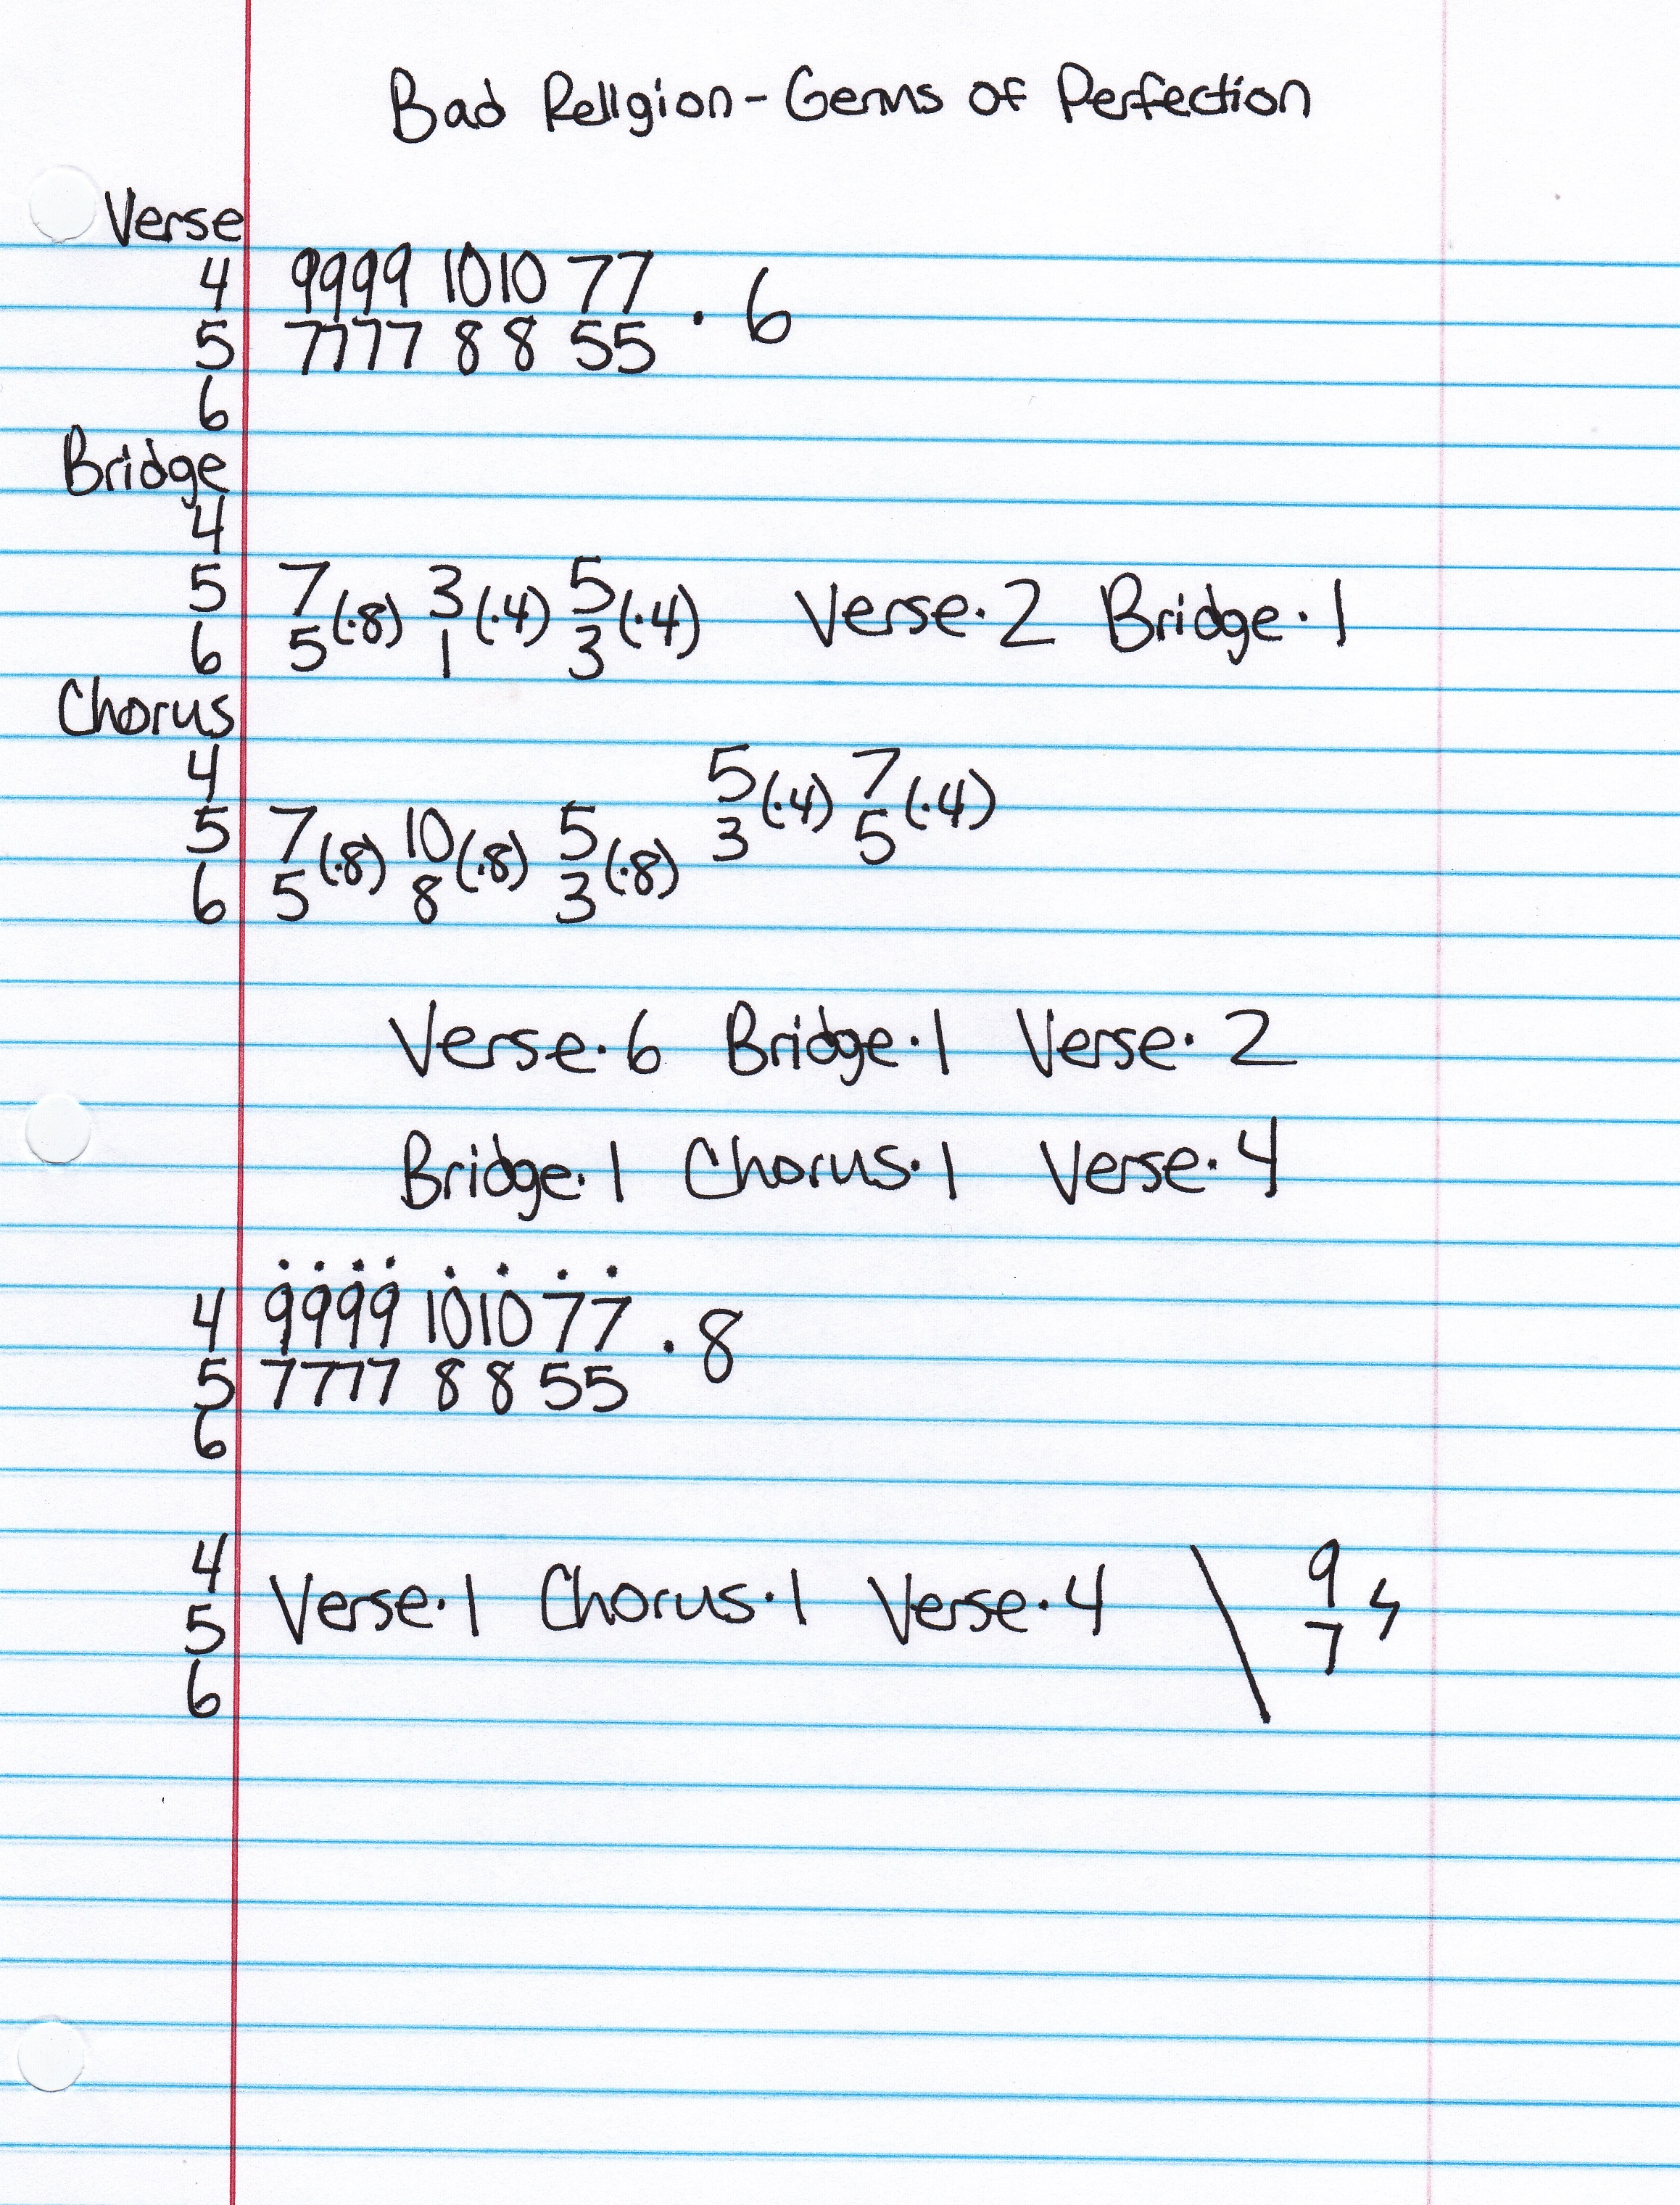 Bad Religion - Germs of Perfection
Verse
4 9999 1010 77
5 7777 8 8 55 · 6
6
Bridge
4
5 7 (·8) 3 (·4) 5 (·4) Verse · 2 Bridge · 1
6 5 1 3
Chorus
4 5 (·4) 7 (·4)
5 7 (·8) 10 (·8) 5 (·8) 3 5
6 5 8 3
Verse · 6 Bridge · 1 Verse · 2
Bridge · 1 Chorus · 1 Verse · 4
. . . . . . . .
4 9999 1010 77 · 8
5 7777 8 8 55
6
4 9
5 Verse · 1 Chorus · 1 Verse · 4 \ 7 ϟ
6